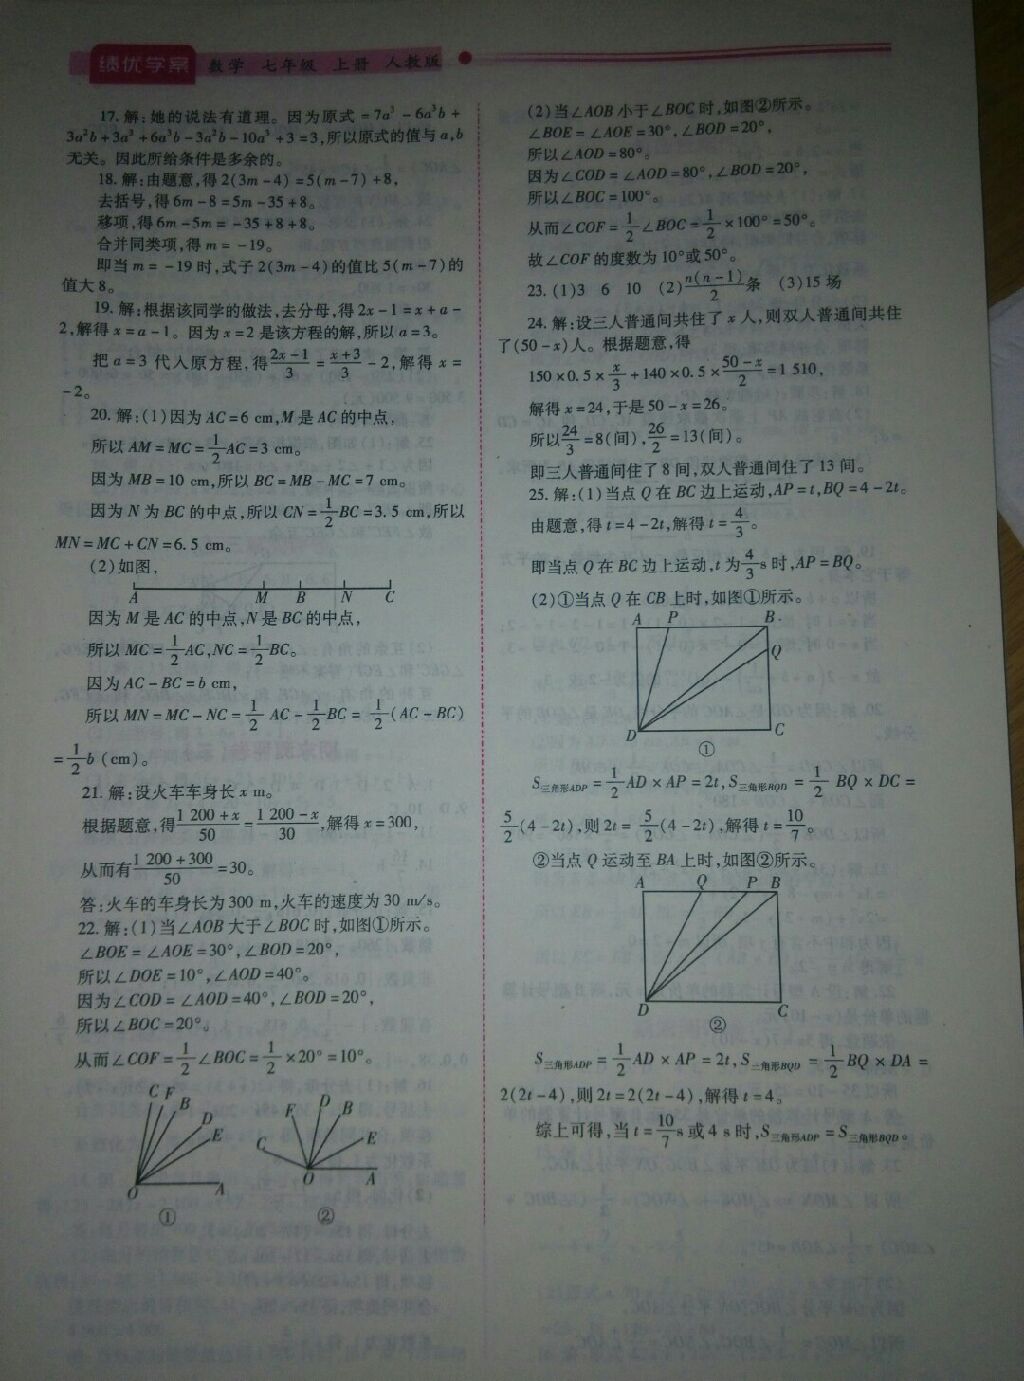 绩优学案 数学 七年级 上册 人教版
17.解:她的说法有道理。因为原式=7a³-6a³b+
3a²b+3a³+6a³b-3a²b-10a³+3=3,所以原式的值与a,b
无关。因此所给条件是多余的。
18.解:由题意,得2(3m-4)=5(m-7)+8,
去括号,得6m-8=5m-35+8。
移项,得6m-5m=-35+8+8。
合并同类项,得m=-19。
即当m=-19时,式子2(3m-4)的值比5(m-7)的
值大8。
19.解:根据该同学的做法,去分母,得2x-1=x+a-
2,解得x=a-1。因为x=2是该方程的解,所以a=3。
把a=3代入原方程,得(2x-1)/3=(x+3)/3-2,解得x=
-2。
20.解:(1)因为AC=6 cm,M是AC的中点,
所以AM=MC=1/2AC=3 cm。
因为MB=10 cm,所以BC=MB-MC=7 cm。
因为N为BC的中点,所以CN=1/2BC=3.5 cm,所以
MN=MC+CN=6.5 cm。
(2)如图,
A M B N C
因为M是AC的中点,N是BC的中点,
所以MC=1/2AC,NC=1/2BC。
因为AC-BC=b cm,
所以MN=MC-NC=1/2AC-1/2BC=1/2(AC-BC)
=1/2b(cm)。
21.解:设火车车身长x m。
根据题意,得(1 200+x)/50=(1 200-x)/30,解得x=300,
从而有(1 200+300)/50=30。
答:火车的车身长为300 m,火车的速度为30 m/s。
22.解:(1)当∠AOB大于∠BOC时,如图①所示。
∠BOE=∠AOE=30°,∠BOD=20°,
所以∠DOE=10°,∠AOD=40°。
因为∠COD=∠AOD=40°,∠BOD=20°,
所以∠BOC=20°。
从而∠COF=1/2∠BOC=1/2×20°=10°。
C F B D E O A
①
F D B C E O A
②
(2)当∠AOB小于∠BOC时,如图②所示。
∠BOE=∠AOE=30°,∠BOD=20°,
所以∠AOD=80°。
因为∠COD=∠AOD=80°,∠BOD=20°,
所以∠BOC=100°。
从而∠COF=1/2∠BOC=1/2×100°=50°。
故∠COF的度数为10°或50°。
23.(1)3 6 10 (2)n(n-1)/2条 (3)15场
24.解:设三人普通间共住了x人,则双人普通间共住
了(50-x)人。根据题意,得
150×0.5×x/3+140×0.5×(50-x)/2=1 510,
解得x=24,于是50-x=26。
所以24/3=8(间),26/2=13(间)。
即三人普通间住了8间,双人普通间住了13间。
25.解:(1)当点Q在BC边上运动,AP=t,BQ=4-2t。
由题意,得t=4-2t,解得t=4/3。
即当点Q在BC边上运动,t为4/3s时,AP=BQ。
(2)①当点Q在CB上时,如图①所示。
A P B Q D C
①
S三角形ADP=1/2AD×AP=2t,S三角形BQD=1/2BQ×DC=
5/2(4-2t),则2t=5/2(4-2t),解得t=10/7。
②当点Q运动至BA上时,如图②所示。
A Q P B D C
②
S三角形ADP=1/2AD×AP=2t,S三角形BQD=1/2BQ×DA=
2(2t-4),则2t=2(2t-4),解得t=4。
综上可得,当t=10/7s或4 s时,S三角形ADP=S三角形BQD。